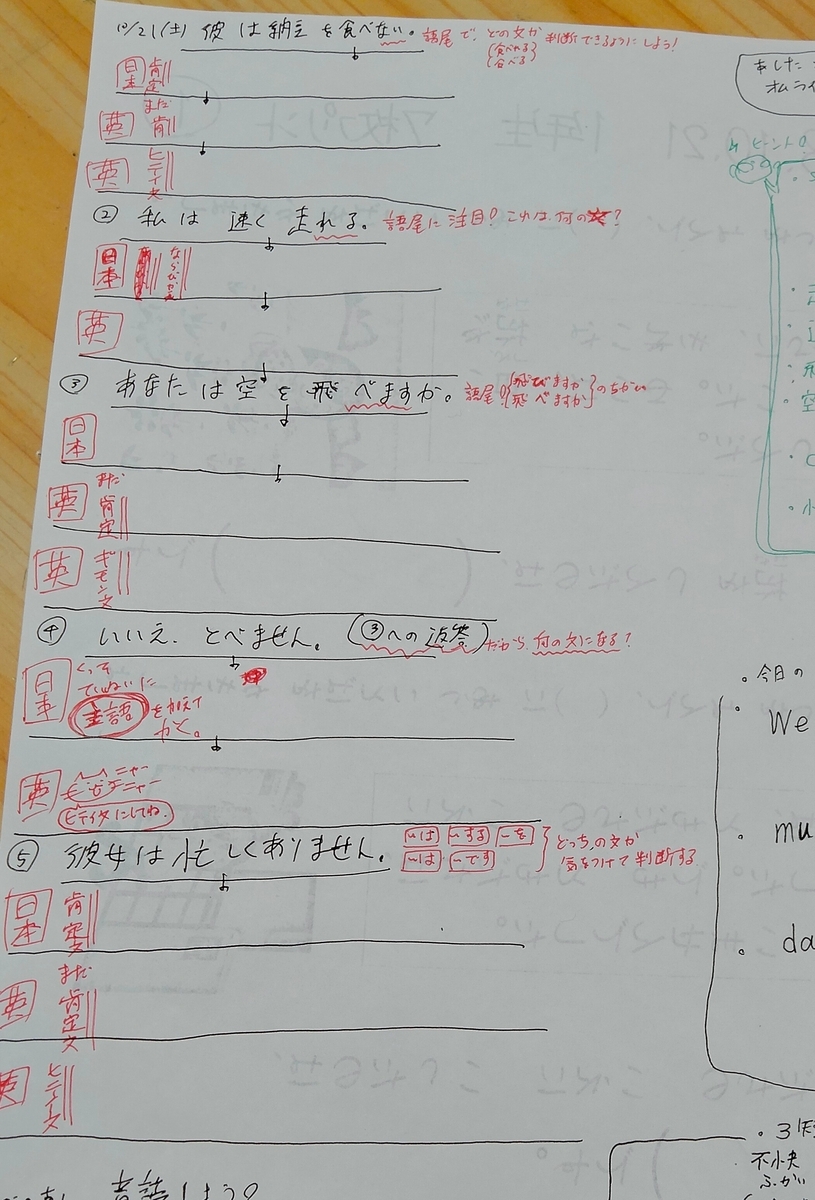 10/21(土) 彼は納豆を食べない。 語尾で、どの文か判断できるようにしよう!
(食べれる)
(食べる)
日本 肯定
英 まだ 肯
英 ヒテイ文
② 私は 速く 走れる。 語尾に注目! これは、何の文?
日本 ならびかえ
英
③ あなたは空を飛べますか。 語尾の 飛びますか 飛べますか のちがい
日本
英 まだ 肯定
英 ギモン文
④ いいえ、とべません。 (③への返答) だから、何の文になる?
日本 くっそ ていねいに 主語 を加えて かく。
英 ヒテイ文にしてね。
⑤ 彼女は忙しくありません。 〜は 〜する 〜を
〜は 〜です どっちの文か 気をつけて判断する
日本 肯定文
英 まだ 肯定文
英 ヒテイ文
ました
オムライ
ヒント
今日の
We
mu
da
3
不愉快
ふかい